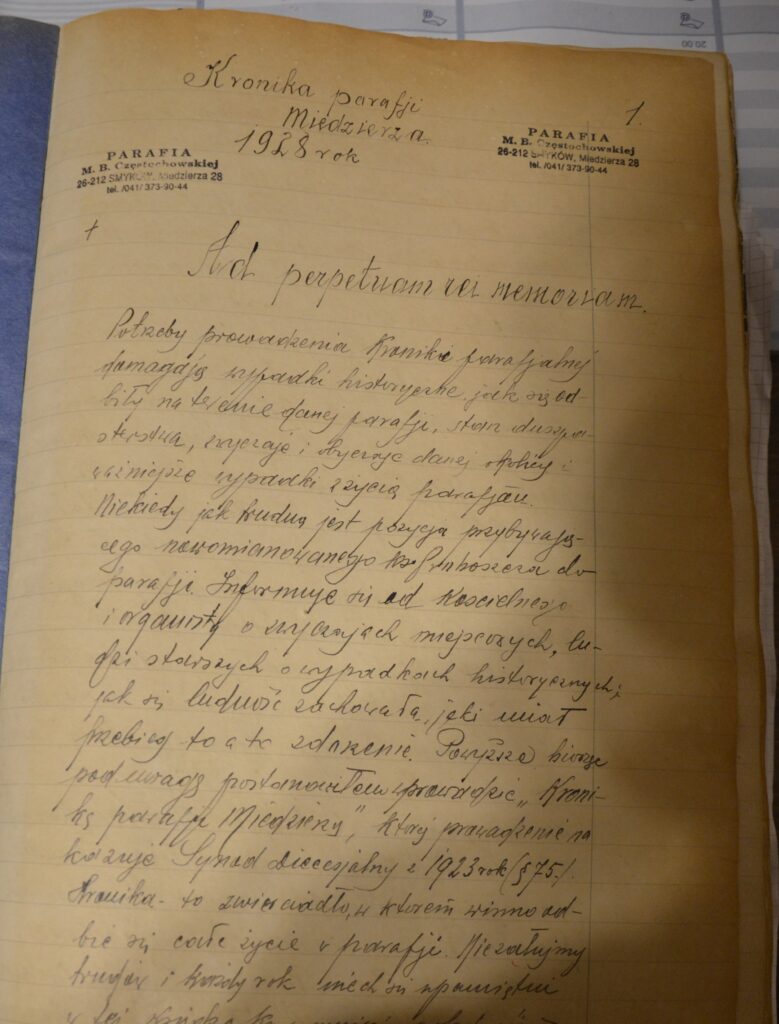 20.00
Kronika parafji
Miedzierza
1928 rok
1.
PARAFIA
M. B. Częstochowskiej
26-212 SMYKÓW, Miedzierza 28
tel. /041/ 373-90-44
PARAFIA
M. B. Częstochowskiej
26-212 SMYKÓW, Miedzierza 28
tel. /041/ 373-90-44
+
Ad perpetuam rei memoriam.
Potrzeby prowadzenia Kroniki parafjalnej
domagają wypadki historyczne, jak się od-
biły na terenie danej parafji, stan duszpa-
sterstwa, zwyczaje i obyczaje danej okolicy i
ważniejsze wypadki z życia parafjan.
Niekiedy jak trudną jest pozycja przybywają-
cego nowomianowanego ks. Proboszcza do
parafji. Informuje się od Kościelnego
i organisty o zwyczajach miejscowych, lu-
dzi starszych o wypadkach historycznych;
jak się ludność zachowała, jaki miał
przebieg to a to zdarzenie. Powyższe biorąc
pod uwagę postanowiłem prowadzić „Kroni-
kę parafji Miedzierzy", której prowadzenie na
kazuje Synod Diecesjalny z 1923 rok (§ 75.).
Kronika - to zwierciadło, w którem winno od-
bić się całe życie w parafji. Nie żałujmy
trudów i każdy rok niech się upamiętni
w tej